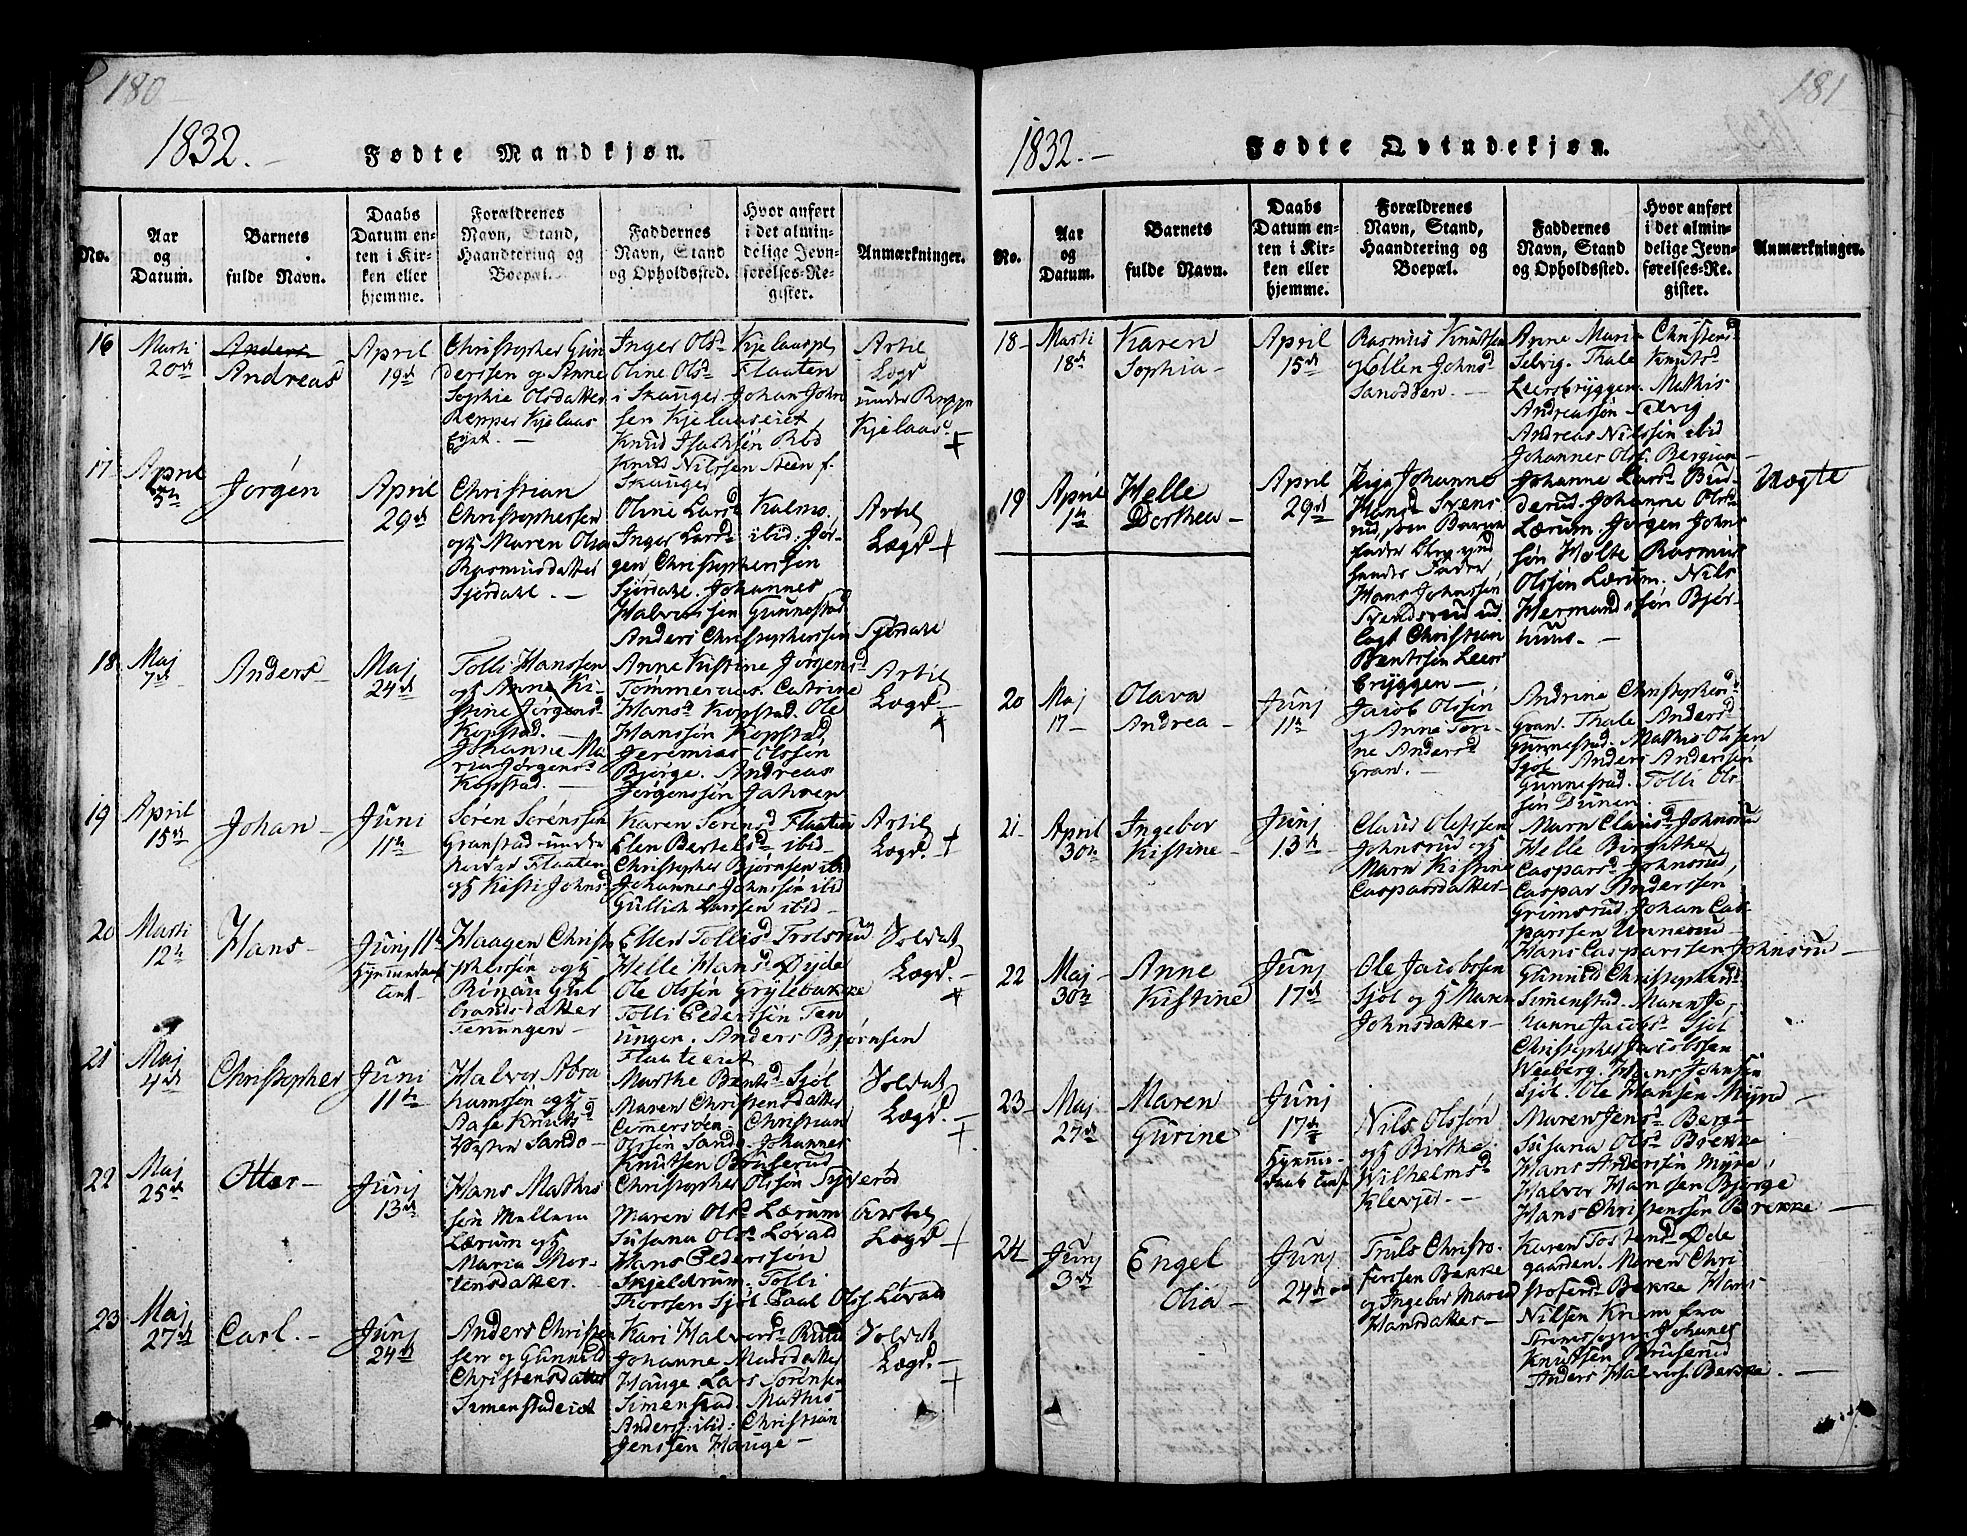 180
1832.
Fødte Mandkjøn.
No.
Aar og Datum.
Barnets fulde Navn.
Daabs Datum enten i Kirken eller hjemme.
Forældrenes Navn, Stand, Haandtering og Boepæl.
Faddernes Navn, Stand og Opholdssted.
Hvor anført i det almindelige Jevnførelses-Register.
Anmærkninger.
16
Marti
20de
Anders
Andreas
April
19de
Christopher Gun
derssen og Anne
Sophie Olsdatter
Repper Kjelaas
Eyet.
Inger Olsd Kjelaaspl
Oline Olsd Flaaten
i Skauger Johan John
sen Kjelaaseiet
Knud Isachsøn Rød
Knud Nilssen Steen f.
Skauger
Artil
Lægd
under Repp
Kjelaas
+
17
April
Jørgen
April
29de
Christian
Christophersen
og Maren Olsd
Rasmusdatter
Sjørdale.
Oline Larsd Kalmo.
Inger Larsd ibid: Jør-
gen Christophersøn
Sjørdale. Johannes
Halvorssen Gunnestad
Anders Christophersøn Sjørdale
Artil
Lægd +
18
Maj
7de
Anders
Maj
24de
Tolli Hanssen
og Anne Ki-
stine Jørgensd
Kopstad.
Johanne Ma
ria Jørgensd
Kopstad.
Anne Kistine Jørgensd
Tømmeraas. Catrine
Hansd Kopstad. Ole
Hanssøn Kopstad,
Jeremias Olssøn
Bjørge. Andreas
Jørgenssøn Jahren
Artil
Lægd
19
April
15de
Johan
Juni
11te
Søren Sørenssen
Granstad under
Flaaten
og Kisti Johnsd
Karen Sørensd Flaaten
Elen Bertelsd ibid
Christopher Bjørnsen ibid
Johannes Johnssøn ibid
Gullich Larssen ibid
Artil
Lægd. +
20
Marti
12te
Hans
Junj 11te
Haagen Christo
phersen og
Rønau Gul
brandsdatter
Teningen
Ellen Tollisd Trolsrud
Helle Hansd Øyde
Ole Olssøn Gryteb
Tolli Pederssen Ten
ingen. Anders Bjørnsen
Flaateeiet
Soldat
Lægd.
21
Maj
4de
Christopher
Juni
11te
Halvor Abra
hamssen og
Aase Knudsd
Vester Sando
Marthe Bentsd Sjøl
Maren Christensdatter
Olssøn Sando. Johannes
Knutsen Bruserud
Soldat
Lægd.
+
22
Maj
25de
Otter
Junj
13de
Hans Mathis
søn Mellem
Lærum og
Maria Mor-
tensdatter.
Christopher Olssøn Tyverød
Maren Olsd Lærum
Susana Olsd Løvad
Hans Pederssøn
Skjeldrum. Tolli
Thorssen Sjøl. Paal Olss. Løvad
Artil
Lægd
+
23
Maj
27de
Carl.
Junj
24de
Anders Christen
sen og Gunnild
Christensdatter
Simenstadeiet
Kari Halvorsd Ruud
Johanne Madsdatter
Hauge. Lars Sørensen
Simenstad. Mathis
Anderss: ibid: Christian
Jenssen Hauge
Soldat
Lægd.
+
181
1832.
Fødte Qvindekjøn.
No.
Aar og Datum.
Barnets fulde Navn.
Daabs Datum enten i Kirken eller hjemme.
Forældrenes Navn, Stand, Haandtering og Boepæl.
Faddernes Navn, Stand og Opholdssted.
Hvor anført i det almindelige Jevnførelses-Register.
Anmærkninger.
18
Marti
18de
Karen
Sophia
April
15de
Rasmus Knutsen
og Ellen Johnsd
Sanodden.
Anne Marie Christensd
Selvig. Thale Knutsd
Leersbryggen. Mathis
Andreassøn Selvig
Andreas Nilssøn ibid
Johannes Olss. Bergsun
19
April
1te
Helle
Dorthea
April
29de
Pige Johanne
Hansd Svens
rud, som Barne
fader blev ud
hendes Fader,
Hans Johnssøn
Svendsrud ud
lagt Christian
Bentssøn Leers
bryggen
Johanne Larsd Bud
derud. Johanne Olsd
Lærum. Jørgen Johns
søn Holte. Rasmus
Olssøn Lærum. Nils
Hermandssøn Bjør-
nuus.
Uægte
20
Maj
17
Olava
Andrea
Junj
11te
Jacob Olssøn
og Anne Tori
ne Andersd
Gran.
Andrine Christophersd
Gran. Thale Andersd
Gunnestad. Mathis Olssen
Sjøl. Anders Anderssøn
Gunnestad. Tolli Ols-
søn Dunen
21
April
30te
Ingebor
Kistine
Junj
13de
Claus Olessen
Johnsrud og
Marn Kistine
Casparsdatter
Marn Clausd Johnsrud
Helle Birgithe
Casparsd Johnsrud,
Caspar Anderssen
Grimsrud, Johan Cas-
parssen Unnerud
Hans Casparssen Johnsrud
22
Maj
30te
Anne
Kistine
Junj
17de
Ole Jacobssen
Sjøl og Maren
Johnsdatter
Gunnild Christophersd
Simenstad. Maren Jo-
hanne Jacobsd Sjøl
Christopher Jacobssen
Weeberg. Hans Johnsen
Sjøl. Ole Hansen Mynd
23
Maj
27de
Maren
Gurine
Junj
17de
Nils Olssøn
og Birthe
Wilhelmsd
Klevjer.
Maren Jensd Berg
Susana Olsd Brekke
Hans Anderssøn Myre,
Halvor Hanssen Bjørge
Hans Christenssøn Brekke
24
Junj
3de
Engel
Olia
Junj
24de
Truls Christo
fersen Bekke
og Ingebor Maria
Hansdatter
Karen Tostensd Øde
gaarden. Maren Chri
stofersd Bekke Hans
Nilsen Krum fra
Johanes
Knutsen Bruserud
Anders Halvors. Bekke.